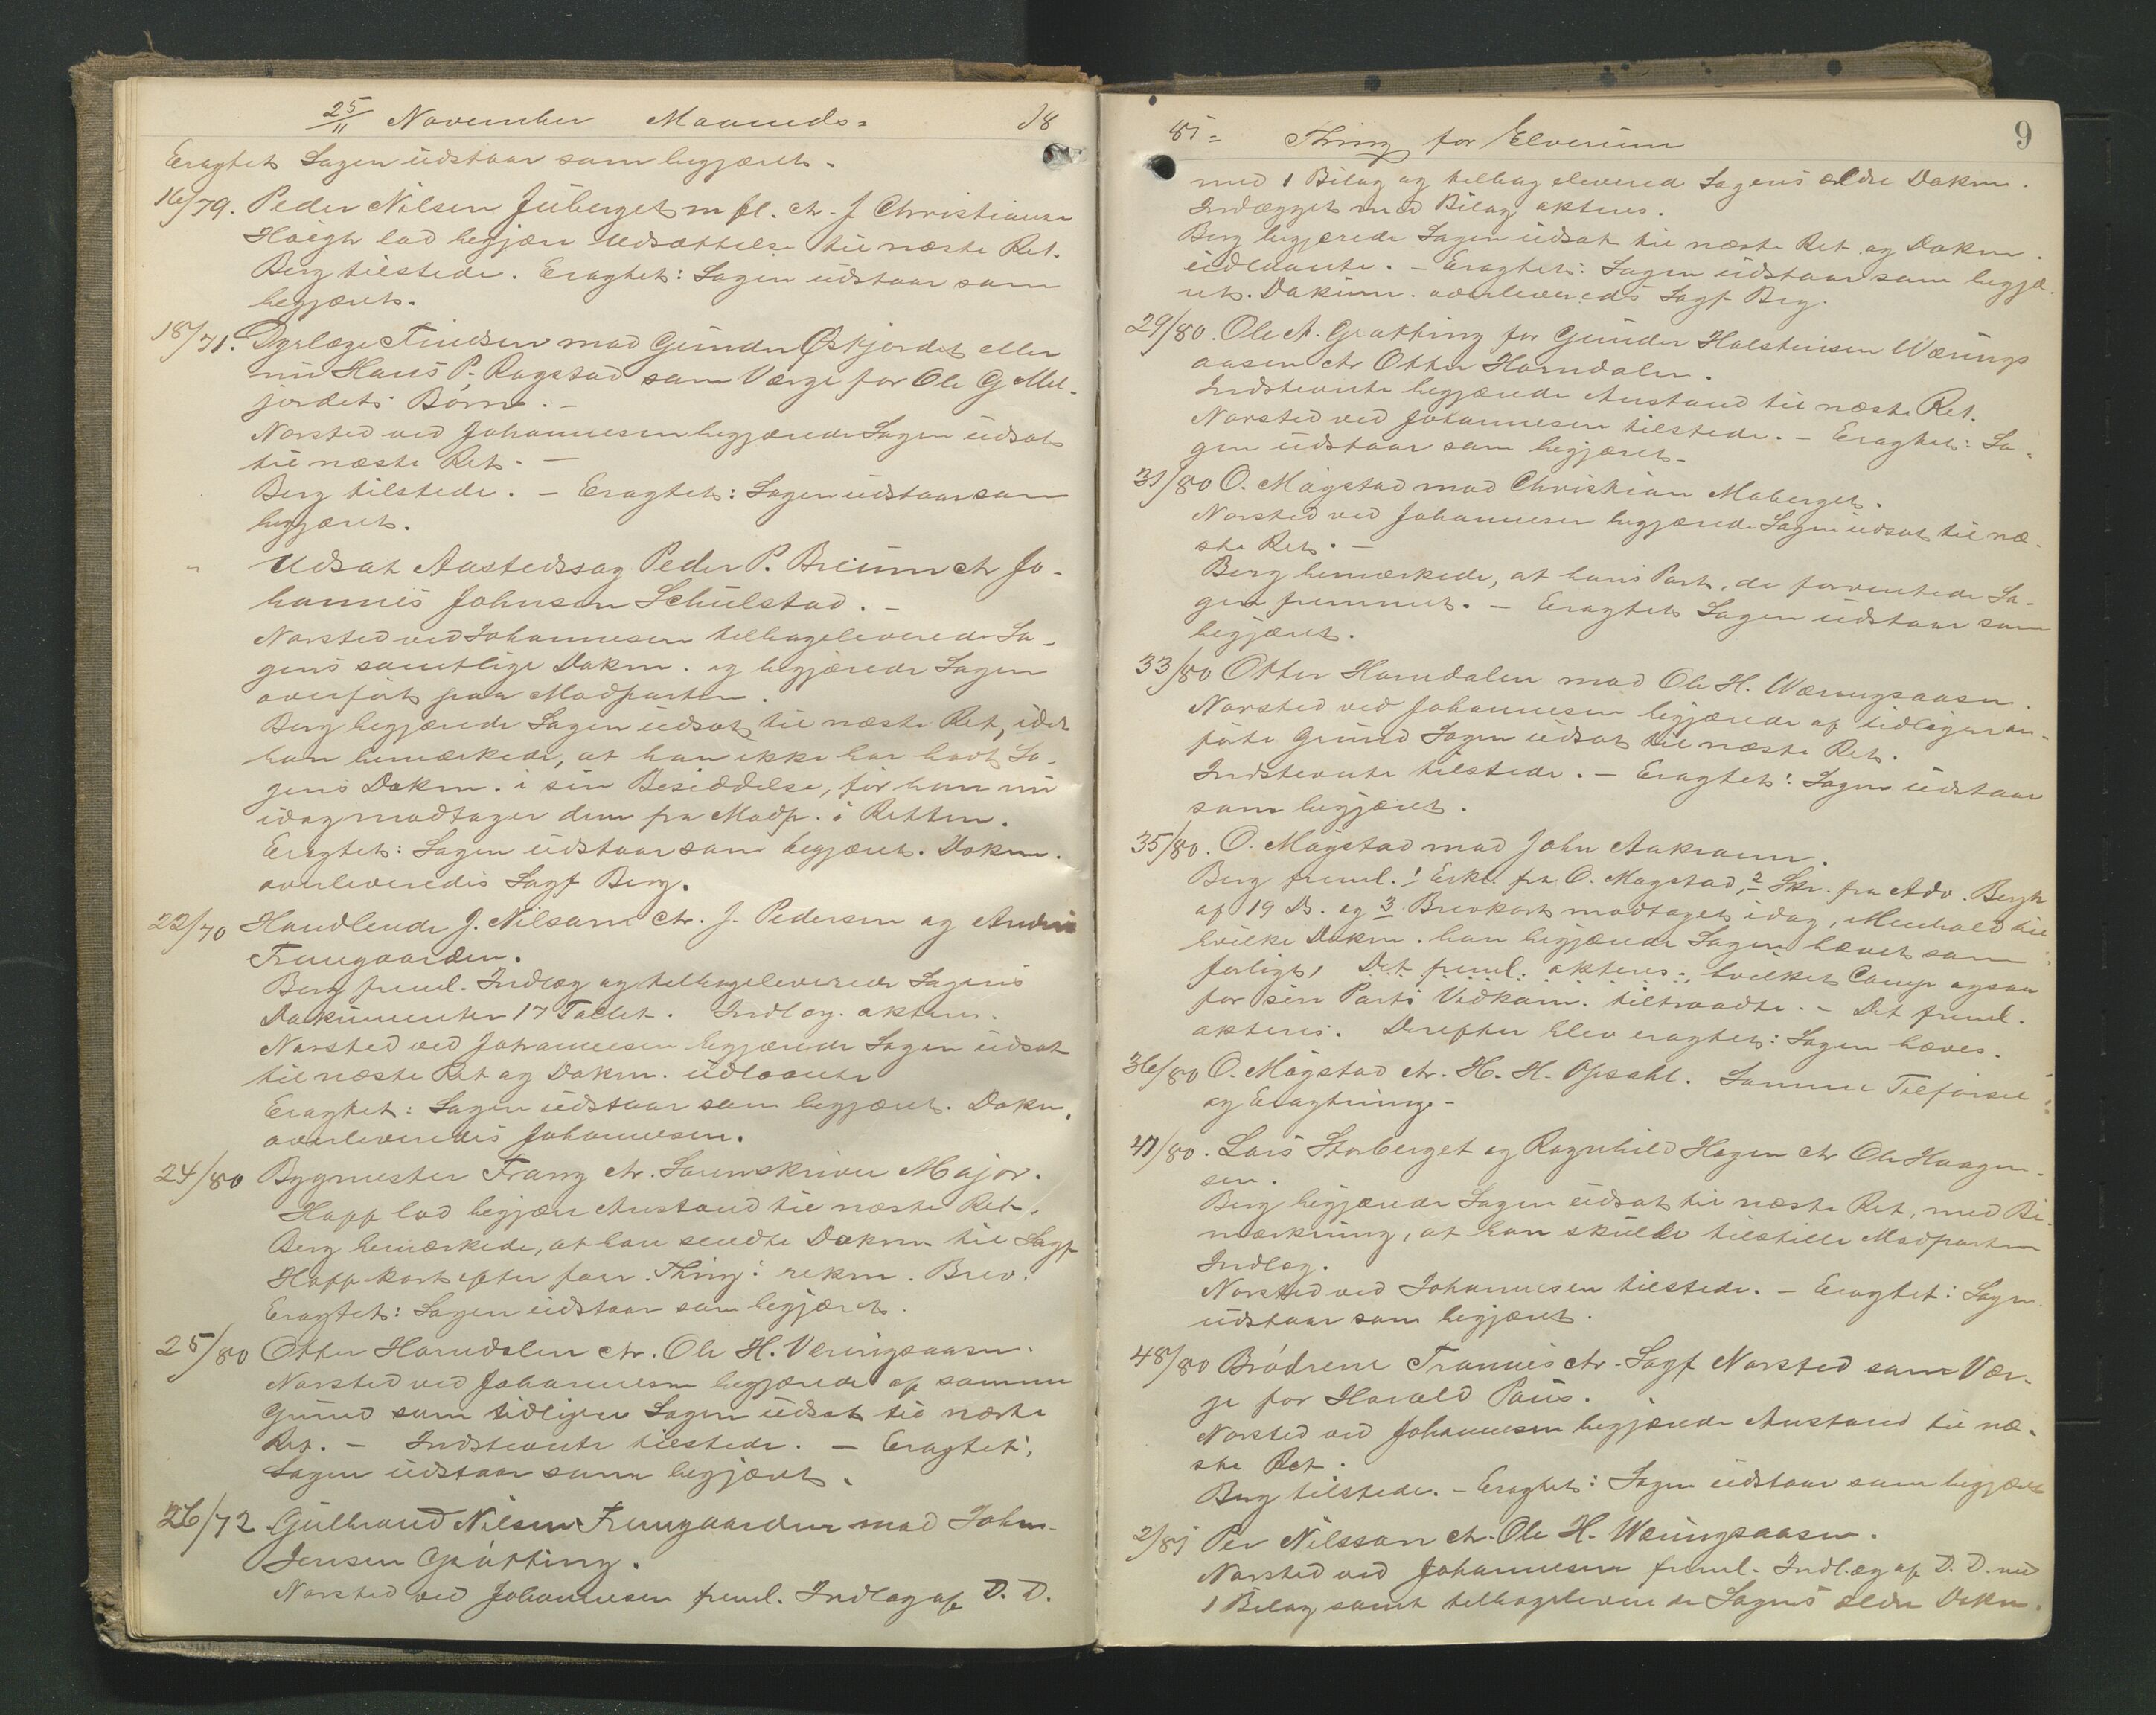 25/11 November Maaneds= 18
Eragtet Sagen udstaar som begjæret.
16/79. Peder Nilsen Juberget m fl. ctr. J Christiansen
Høegh lod begjære Udsættelse til næste Ret.
Berg tilstede. Eragtet: Sagen udstaar som
begjæret.
18/71. Dyrlæge Knudsen mod Gunder Øskjordet eller
nu Hans P. Rogstad som Værge for Ole G Mel-
jordets Børn. -
Norsted ved Johannesen begjærede Sagen udsat
til næste Ret. -
Berg tilstede. - Eragtet: Sagen udstaar som
begjæret.
" Udsat Aastedssag Peder P. Breium ctr Jo-
hannes Johnsen Schulstad. -
Norsted ved Johannesen tilbageleverede Sa-
gens samtlige Dokm. og begjærede Sagen
overført paa Modparten.
Berg begjærede Sagen udsat til næste Ret, idet
han bemærkede, at han ikke har havt Sa-
gens Dokm. i sin Besiddelse, før han nu
idag modtager dem fra Modp. i Retten.
Eragtet: Sagen udstaar som begjæret. Dokm.
overleveredes Sagf Berg.
22/70 Handlende J. Nilsson ctr. J. Pedersen og Andr
Frengaarden.
Berg freml. Indlæg og tilbageleverede Sagens
Dokumenter 17 Tallet. Indlæg. akteres.
Norsted ved Johannesen begjærede Sagen udsat
til næste Ret og Dokm. udlaante
Eragtet: Sagen udstaar som begjæret. Dokm.
overleveredes Johannesen.
24/80 Bygmester Franz ctr. Sorenskriver Major.
Hopp lod begjære Anstand til næste Ret.
Berg bemærkede, at han sendte Dokm til Sagf
Hopp kort efter forr. Thing i rekm. Brev.
Eragtet: Sagen udstaar som begjæret.
25/80 Otter Horndalen ctr. Ole H. Væringsaasen.
Norsted ved Johannesen begjærede af samme
Grund som tidligere Sagen udsat til næste
Ret. - Indstevnte tilstede. - Eragtet:
Sagen udstaar som begjæret.
26/72 Gulbrand Nilsen Frengaarden mod John
Jensen Grøtting.
Norsted ved Johannesen freml. Indlæg af D. D.
81= Thing for Elverum 9
med 1 Bilag og tilbagelevered Sagens ældre Dokm.
Indlægget med Bilag akteres.
Berg begjærede Sagen udsat til næste Ret og Dokm.
udlaante. - Eragtet: Sagen udstaar som begjæ-
ret. Dokum. overleveredes Sagf Berg.
29/80. Ole A. Grøtting for Gunder Halstensen Wærings
aasen ctr Otter Horndalen.
Indstevnte begjærede Anstand til næste Ret.
Norsted ved Johannesen tilstede. - Eragtet: Sa-
gen udstaar som begjæret.
31/80 O. Mågstad mod Christian Moberget.
Norsted ved Johannesen begjærede Sagen udsat til næ-
ste Ret. -
Berg bemærkede, at hans Part. de forventede Sa-
gen fremmet. - Eragtet Sagen udstaar som
begjæret.
33/80 Otter Horndalen mod Ole H. Wæringsaasen.
Norsted ved Johannesen begjærede af tidligere an-
førte Grund Sagen udsat til næste Ret.
Indstevnte tilstede. - Eragtet: Sagen udstaar
som begjæret.
35/80. O. Mågstad mod John Aakrann.
Berg freml. 1 Erkl. fra O. Magstad, 2 Skr. fra Adv. Bergh
af 19 Ds. og 3 Brevkort modtaget idag, i Menhold til
hvilke Dokm. han begjærede Sagen hævet som
forligt, Det freml. akteres, hvilket Camp ogsaa
for sin Parts Vedkom. tiltraadte. - Det freml.
akteres. Derefter blev eragtet: Sagen hæves.
36/80 O. Mågstad ctr. H. H. Opsahl. Samme Tilførsel
og Eragtning -
41/80. Lars Storberget og Ragnhild Hagen ctr Ole Haagen-
sen.
Berg begjærede Sagen udsat til næste Ret, med Be-
mærkning, at han skulde tilstille Modparten
Indlæg.
Norsted ved Johannesen tilstede. - Eragtet: Sagen
udstaar som begjæret.
48/80 Brødrene Trannes ctr. Sagf Norsted som Vær-
ge for Harald Paus.
Norsted ved Johannesen begjærede Anstand til næ-
ste Ret.
Berg tilstede. - Eragtet: Sagen udstaar som begjæret
2/81 Per Nilsson ctr. Ole H. Wæringsaasen.
Norsted ved Johannesen freml. Indlæg af D. D. med
1 Bilag samt tilbageleverede Sagens ældre Dokm.